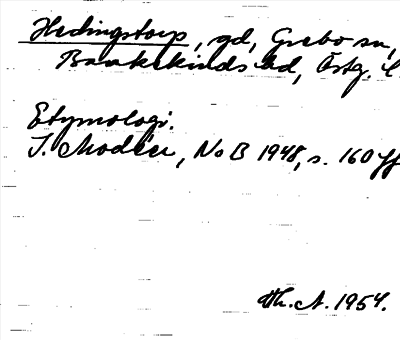 Hedingstorp, gd, Grebo sn,
Bankekinds hd, Östg. l.
Etymologi.
I. Modéer, NoB 1948, s. 160 ff
Th. A. 1954.